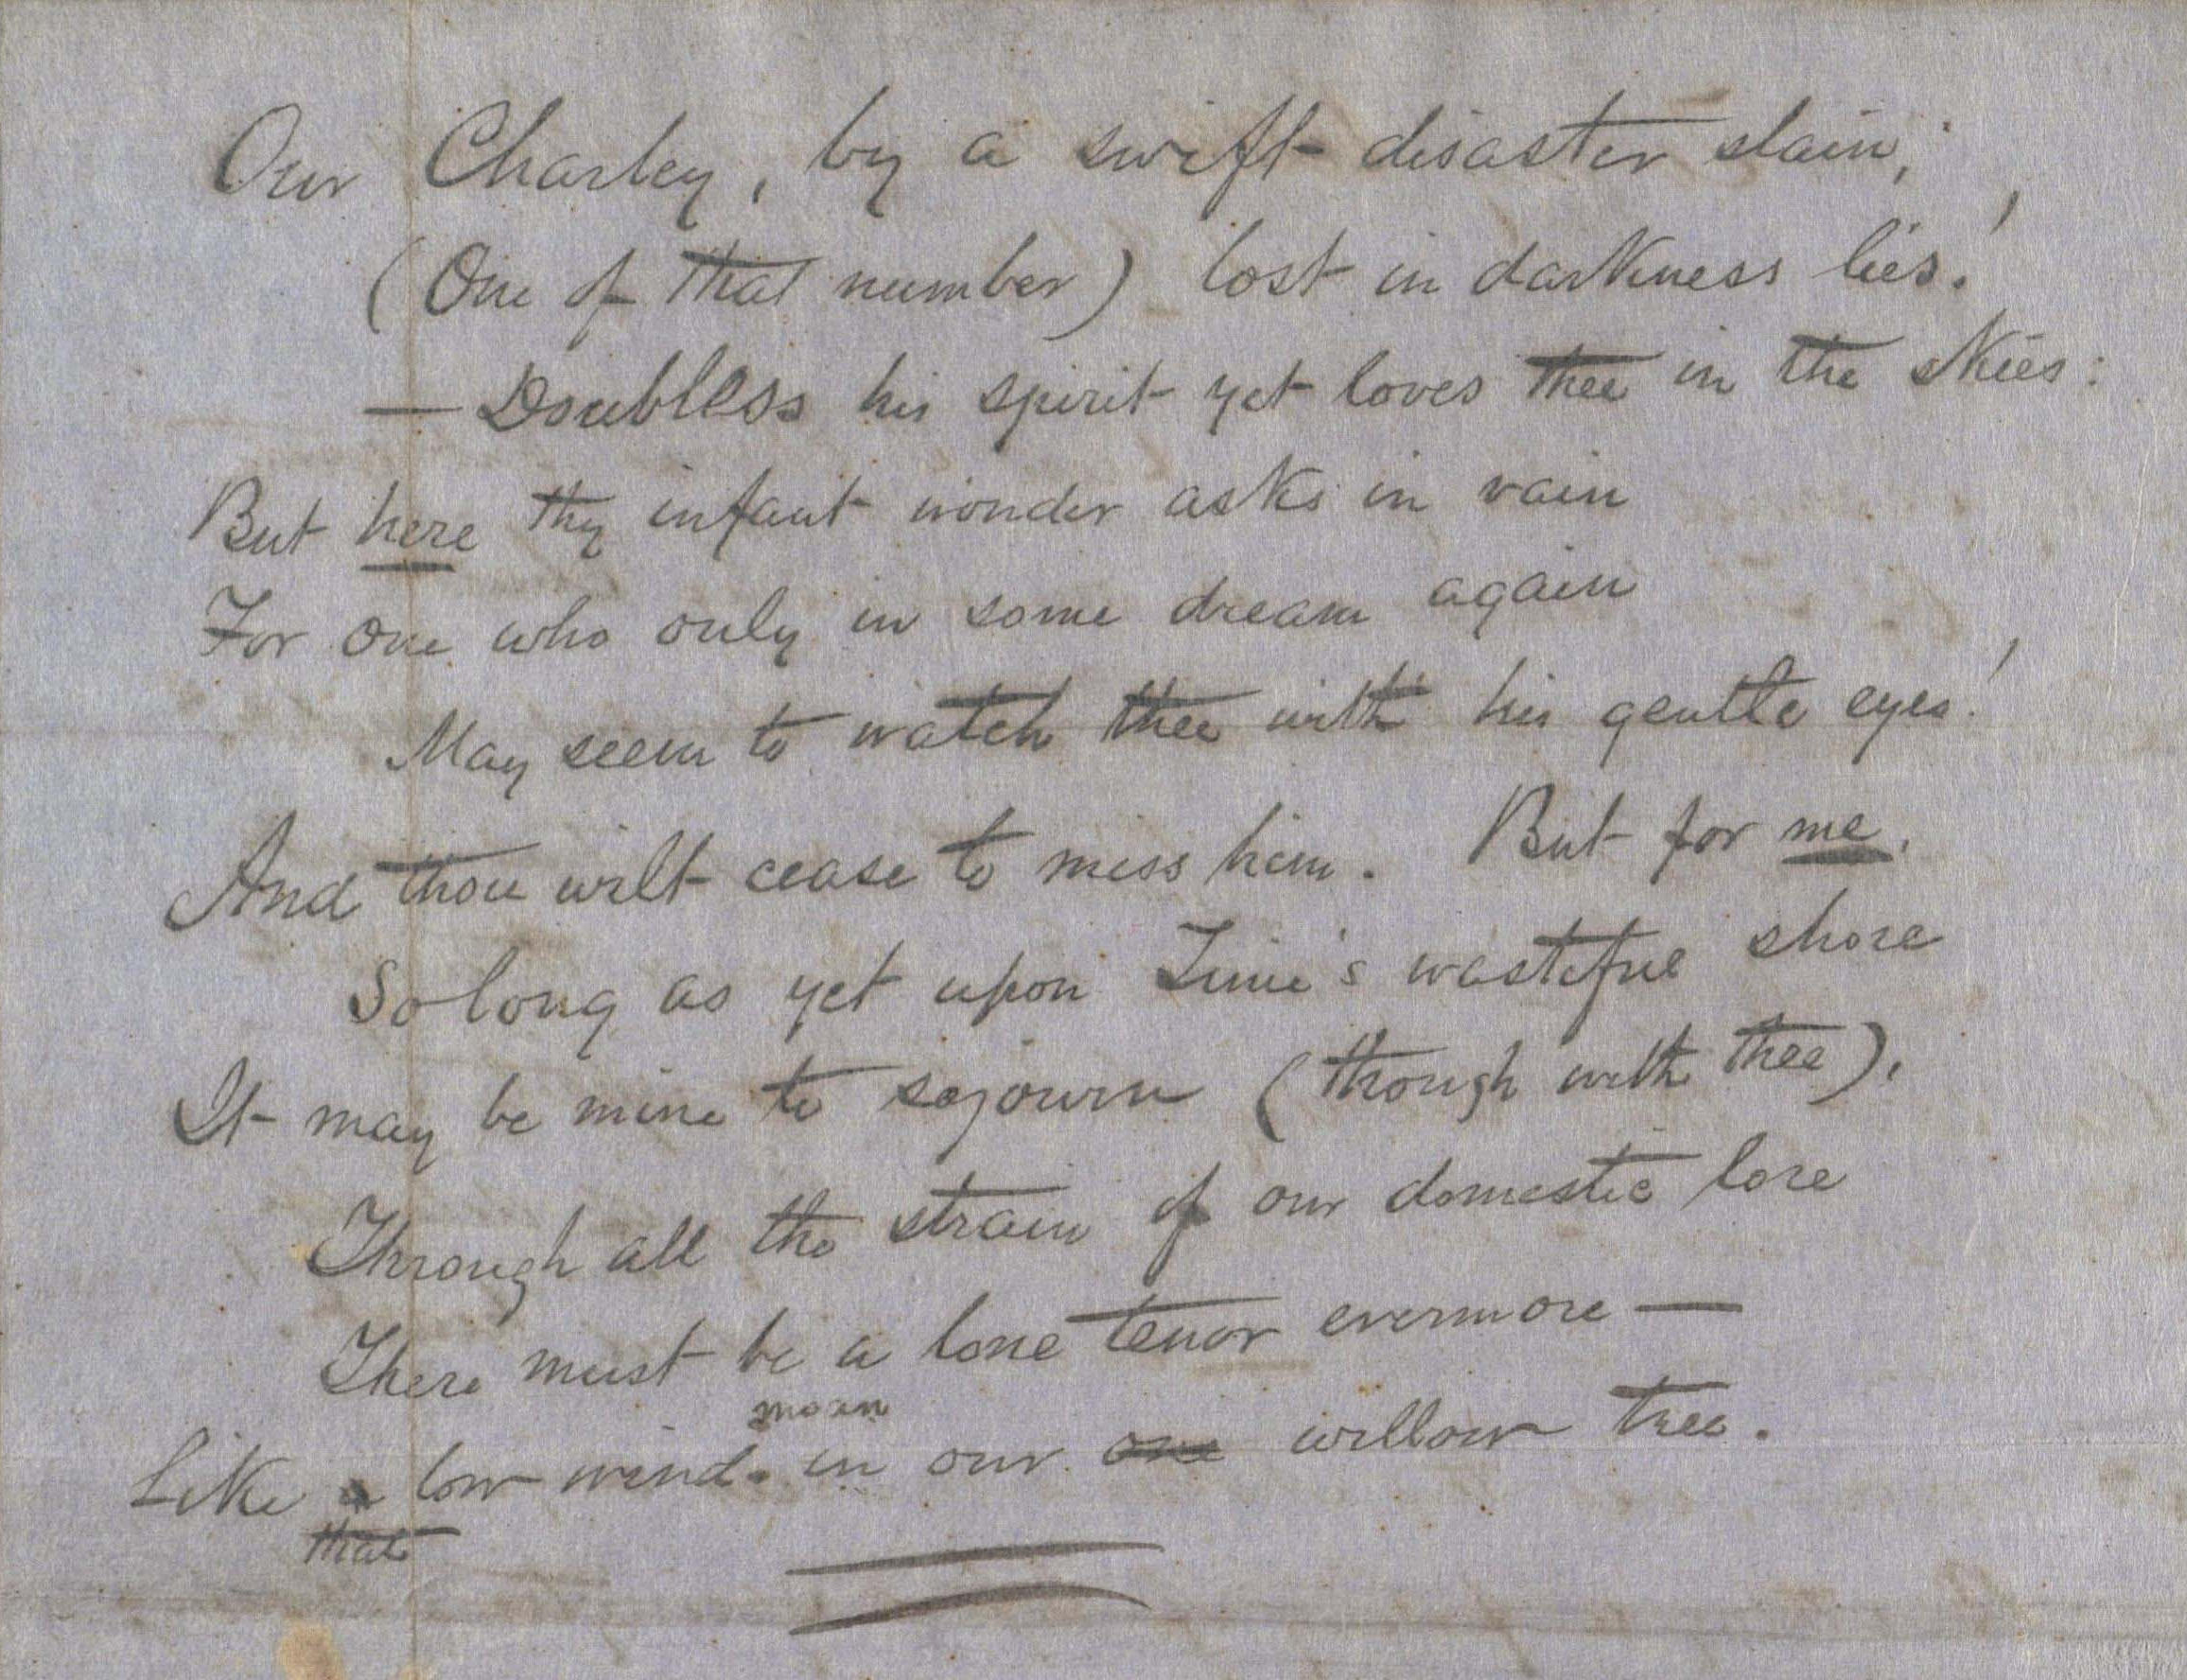 Our Charley, by a swift disaster slain,
(One of that number) lost in darkness lies!
— Doubtless his spirit yet loves thee in the skies:
But here thy infant wonder asks in vain
For one who only in some dream again
May seem to watch thee with his gentle eyes!
And thou wilt cease to miss him. But for me,
So long as yet upon Time's wasteful shore
It may be mine to sojourn (though with thee),
Through all the strain of our domestic lore
There must be a lone tenor evermore —
moan
Like a low wind in our one willow tree.
that